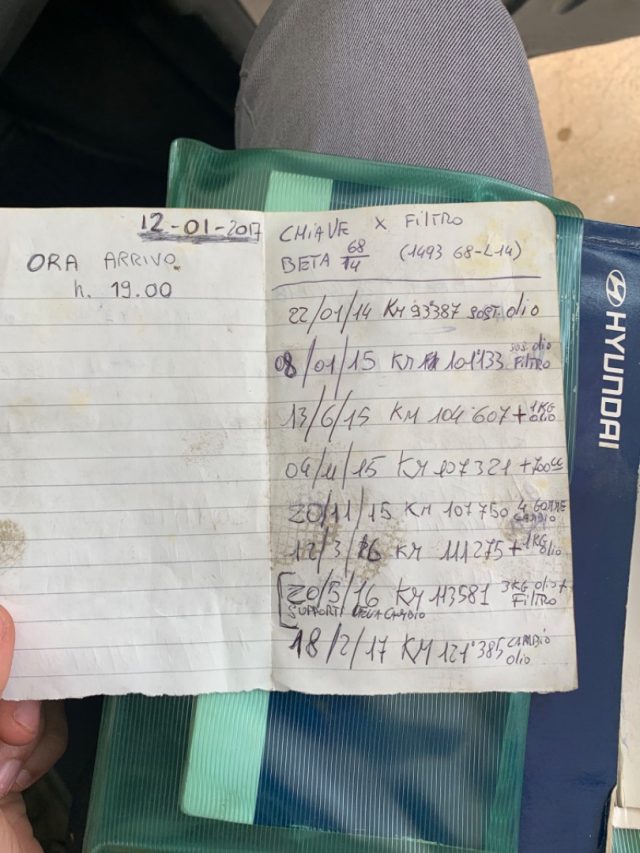 12-01-2017
ORA ARRIVO
h. 19.00
CHIAVE x FILTRO
BETA 68/14 (1493 68-L14)
22/01/14 KM 93'387 SOST olio
08/01/15 KM 101'133 sos. olio FILTRO
13/6/15 KM 104 607 + 1KG OLIO
04/11/15 KM 107321 + 700cc
20/11/15 KM 107750 4 GOMME CAMBIO
12/3/16 KM 111275 + 1KG olio
20/5/16 KM 113581 3KG olio + FILTRO
SUPPORTI CAMBIO
18/2/17 KM 121'385 CAMBIO olio
HYUNDAI